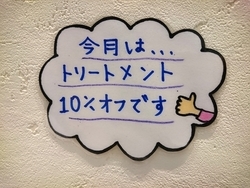 今月は...
トリートメント
10%オフです